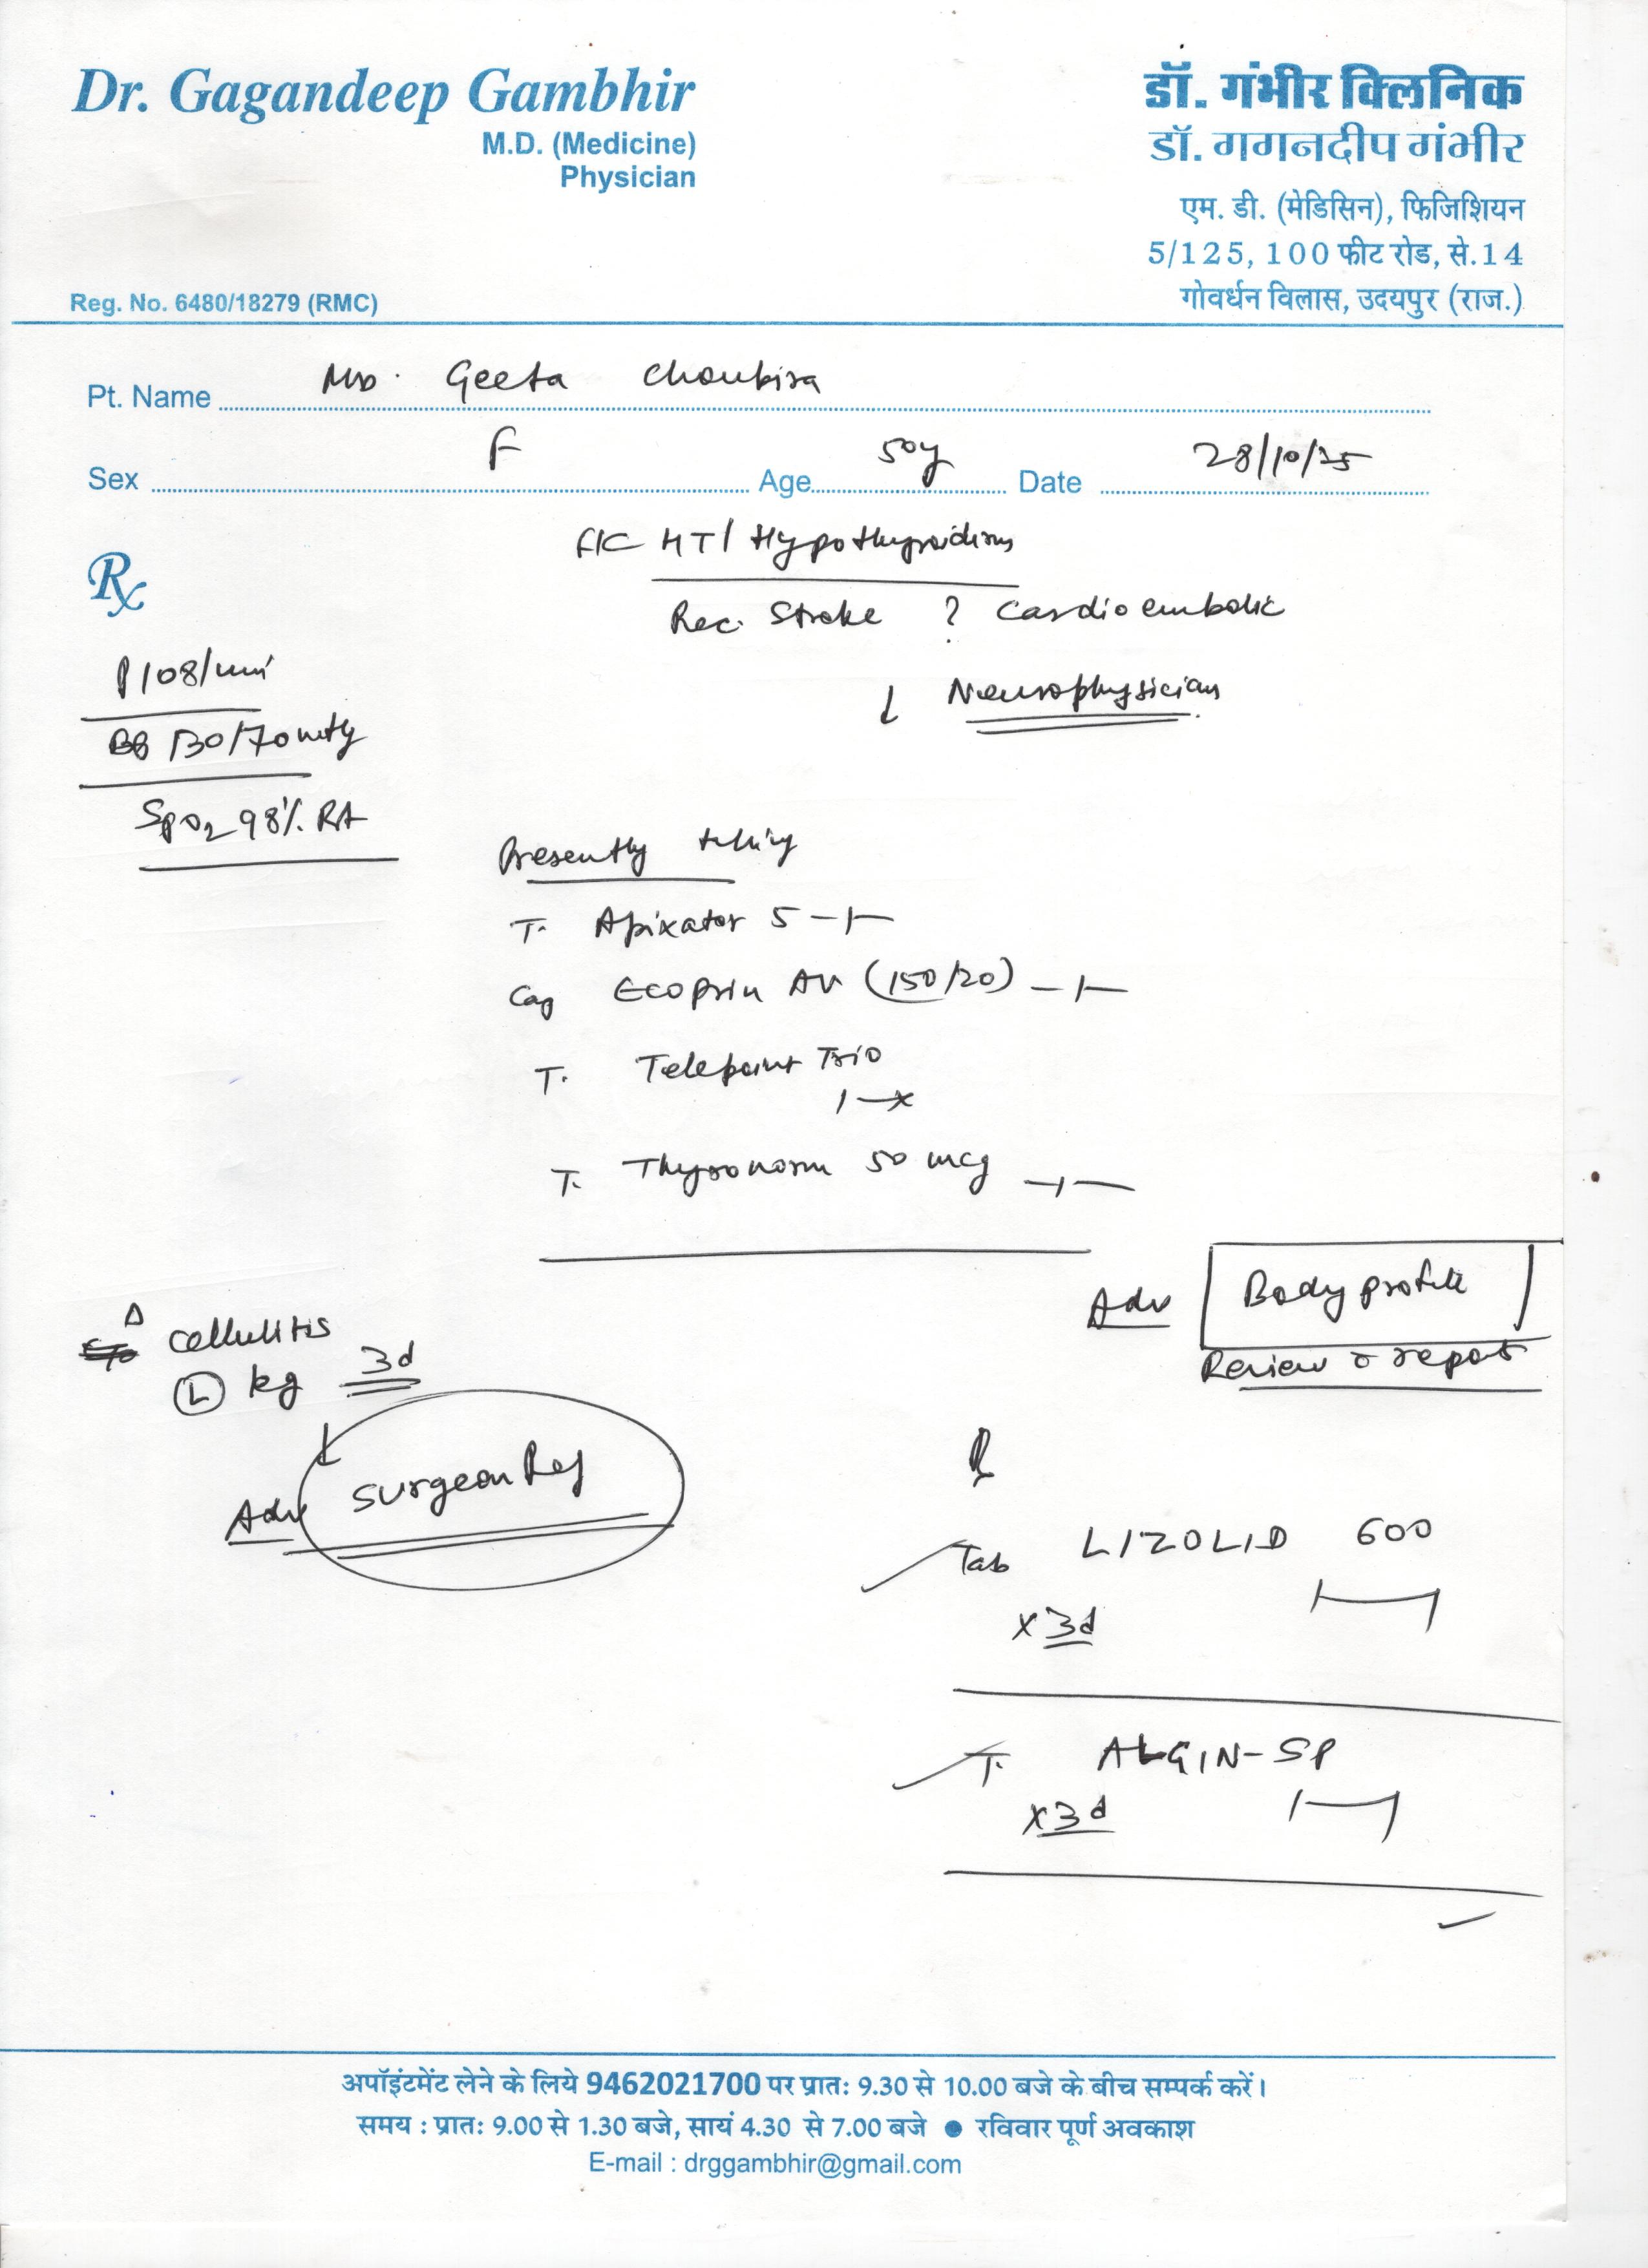 Dr. Gagandeep Gambhir
M.D. (Medicine)
Physician
Reg. No. 6480/18279 (RMC)
डॉ. गंभीर क्लिनिक
डॉ. गगनदीप गंभीर
एम. डी. (मेडिसिन), फिजिशियन
5/125, 100 फीट रोड, से.14
गोवर्धन विलास, उदयपुर (राज.)
Pt. Name Geeta
Sex F Age 50y Date 28/10/25
Rx
HT/ Hypothyroidism
Rec. Stroke ? Cardioembolic
↓ Neurophysician
P 108/min
BP 130/70 mmHg
SpO2 98% RA
Presently taking
T. Apixator 5 -1-
Cap Ecoprin AV (150/20) -1-
T. Telepoint Trio
1-x
T. Thyronorm 50 mcg -1-
Adv Body profile
Review c report
Δ cellulitis
(L) leg 3d
↓
Adv surgeon Ref
R
Tab LIZOLID 600
x 3d 1-1
T. ALGIN-SP
x 3d 1-1
अपॉइंटमेंट लेने के लिये 9462021700 पर प्रातः 9.30 से 10.00 बजे के बीच सम्पर्क करें।
समय : प्रातः 9.00 से 1.30 बजे, सायं 4.30 से 7.00 बजे ● रविवार पूर्ण अवकाश
E-mail : drggambhir@gmail.com